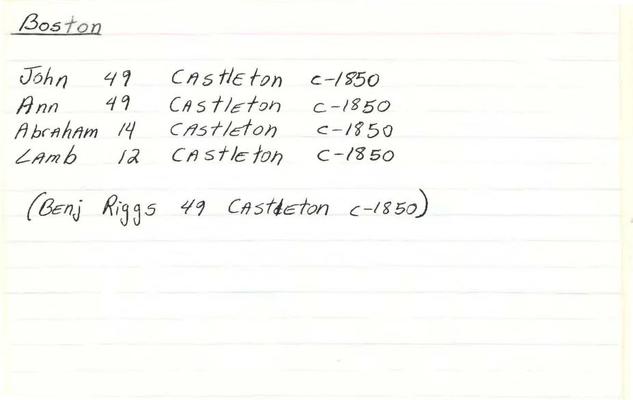 Boston
John 49 Castleton c-1850
Ann 49 Castleton c-1850
Abraham 14 Castleton c-1850
Lamb 12 Castleton c-1850
(Benj Riggs 49 Castleton c-1850)